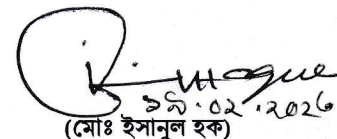 ১৯.০২.২০২৬
(মোঃ ইসানুল হক)